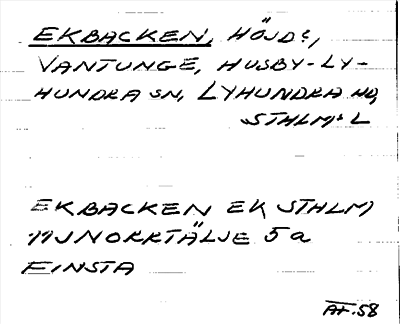 EKBACKEN, HÖJDS,
VANTUNGE, HUSBY-LY-
HUNDRA SN, LYHUNDRA HD,
STHLMS L
EKBACKEN EK STHLM
11J NORRTÄLJE 5a
FINSTA
AF.58